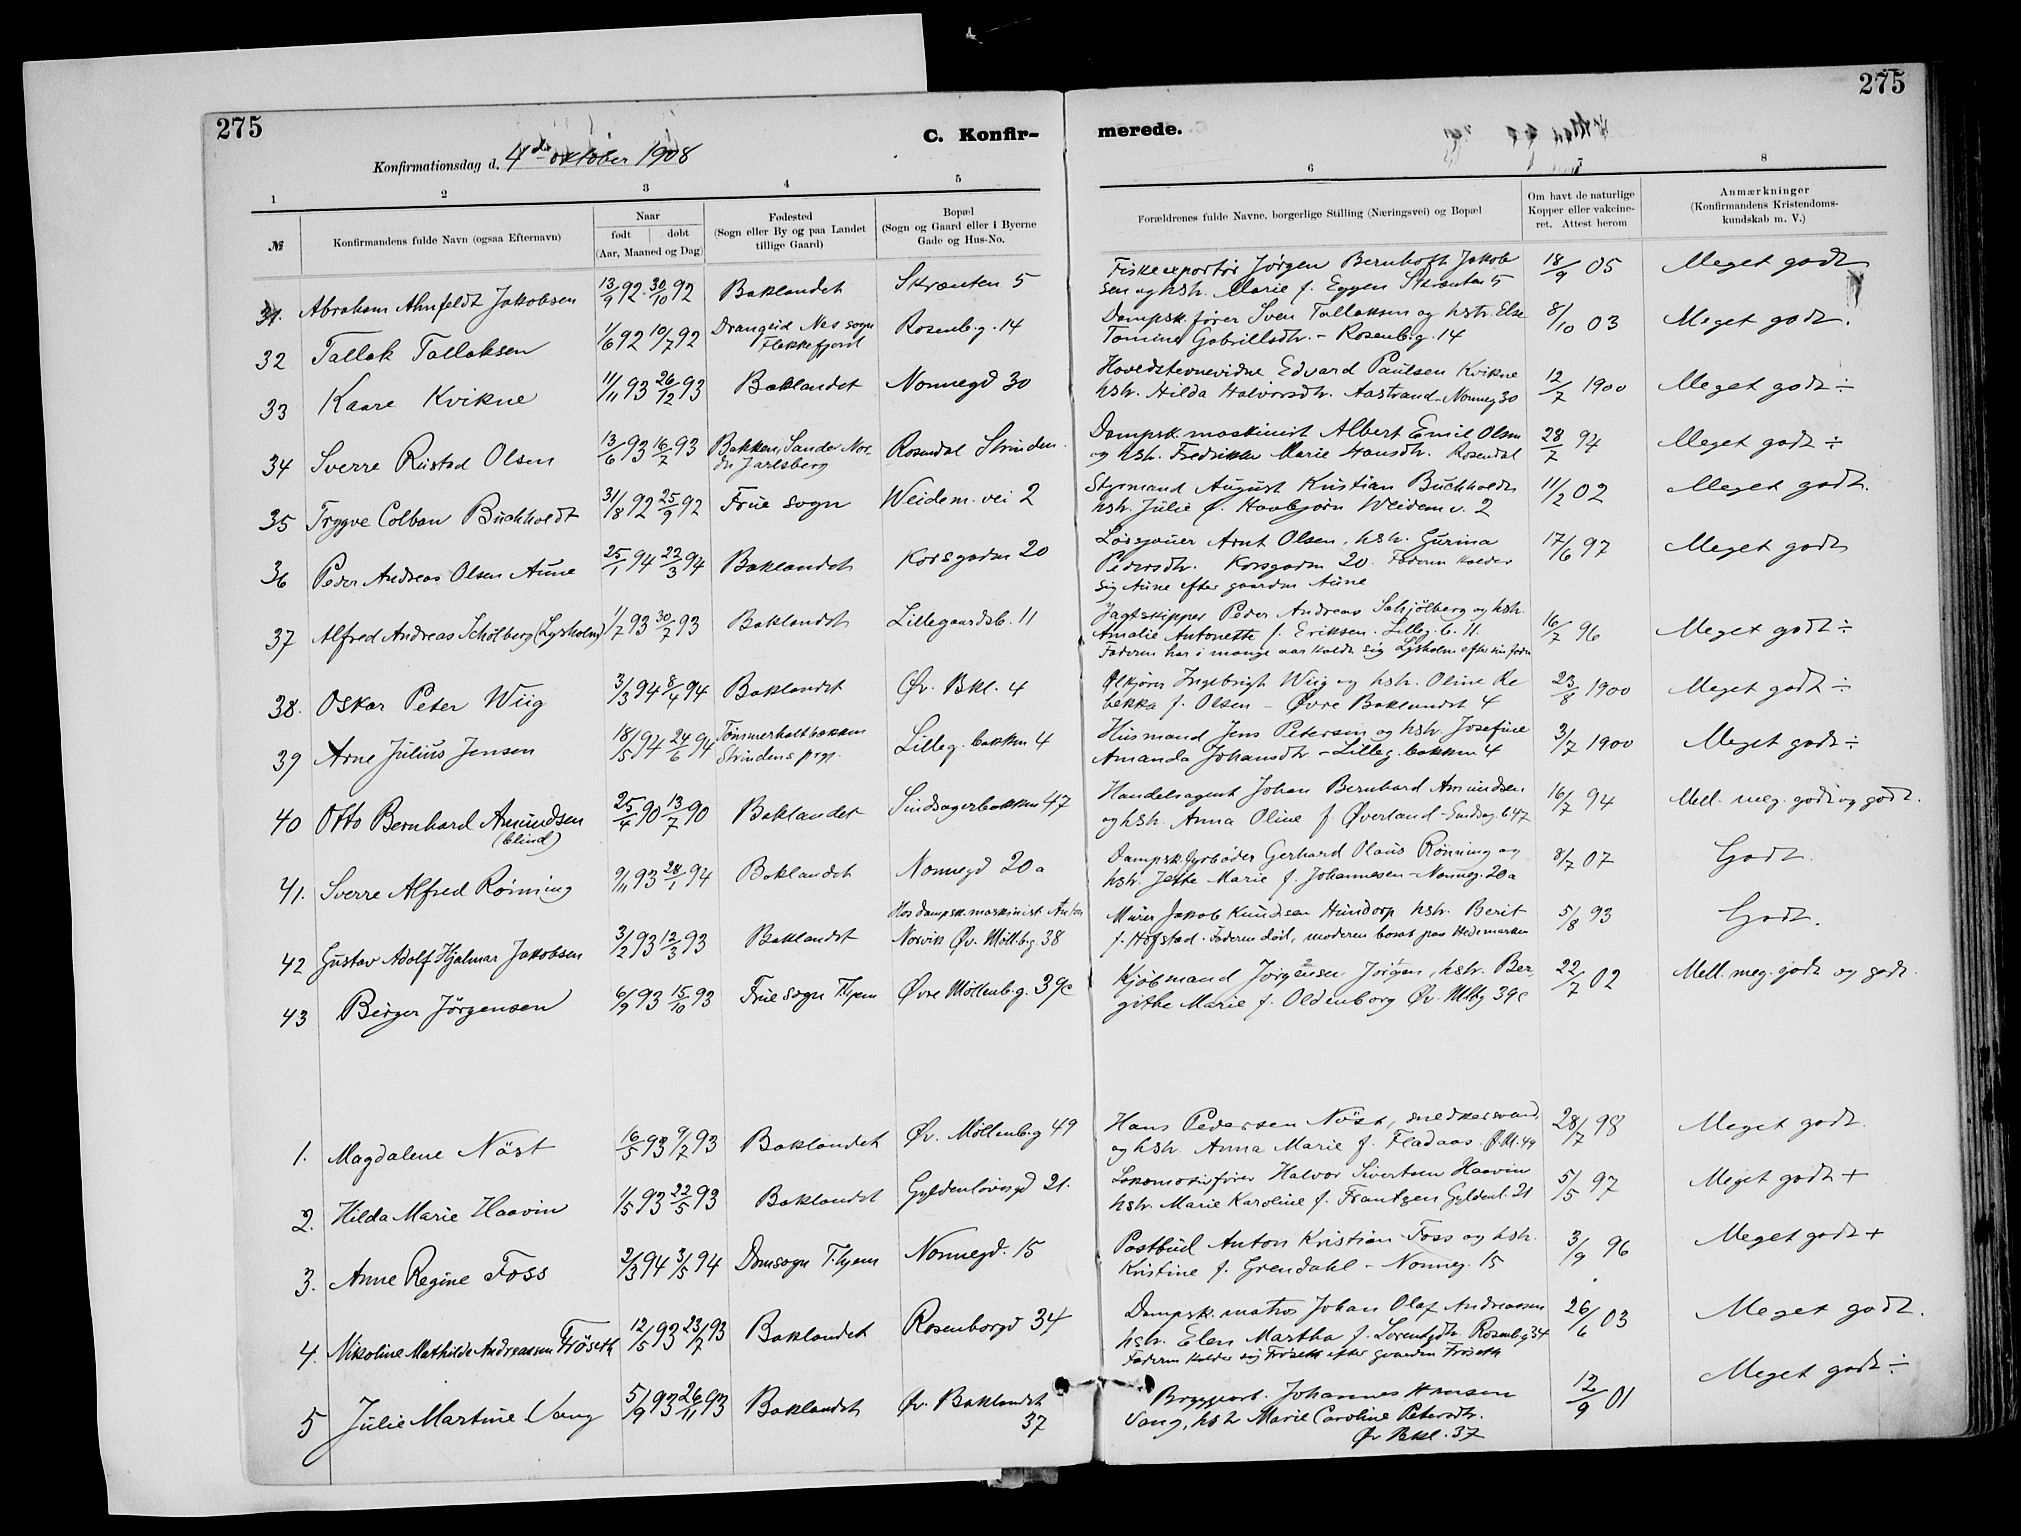 275
275
C. Konfir-
merede.
Konfirmationsdag d. 4de oktober 1908
1 2 3 4 5 6 7 8
№ Konfirmandens fulde Navn (ogsaa Efternavn)
Naar født døbt (Aar, Maaned og Dag)
Fødested (Sogn eller By og paa Landet tillige Gaard)
Bopæl (Sogn og Gaard eller i Byerne Gade og Hus-No.
Forældrenes fulde Navne, borgerlige Stilling (Næringsvei) og Bopæl
Om havt de naturlige Kopper eller vakcineret. Attest herom
Anmærkninger (Konfirmandens Kristendomskundskab m. V.)
31. Abraham Ahnfeldt Jakobsen 13/9 92 30/10 92 Baklandet Skrænten 5
Fiskeexportør Jørgen Bernhoft Jakob 18/9 05 Meget godt
sen og hstr. Marie f. Eggen Skrænten 5
32 Tallak Tallaksen 1/6 92 10/7 92 Drangeid Nes sogn Flekkefjord Rosenb.g. 14
Dampsk.fører Sven Tallaksen og hstr. Else 8/10 03 Meget godt.
Tomine Gabrillsdtr. - Rosenb.g. 14
33 Kaare Kvikne 11/11 93 26/12 93 Baklandet Nonnegd 30
Hovedstevnevidne Edvard Paulsen Kvikne 12/7 1900 Meget godt ÷
hstr. Hilda Halvorsdtr. Aastrand. Nonneg 30
34 Sverre Rustad Olsen 13/6 93 16/7 93 Bakken, Sandar Nordr Jarlsberg Rosendal Strinden.
Dampsk. maskinist Albert Emil Olsen 28/7 94 Meget godt ÷
og hstr. Fredrikke Marie Hansdtr. Rosendal
35 Trygve Colban Buchholdt 31/8 92 25/9 92 Frue sogn Weidem. vei 2
Styrmand August Kristian Buchholdt 11/2 02 Meget godt.
hstr. Julie f. Haabjørn Weidem v. 2
36 Peder Andreas Olsen Aune 25/1 94 22/3 94 Baklandet Korsgaden 20
Løsgjøuer Arnt Olsen, hstr. Gurina 17/6 97 Meget godt
Pedersdtr. Korsgaden 20. Faderen kalder
sig Aune efter gaarden Aune
37 Alfred Andreas Schölberg (Lysholm) 1/7 93 30/7 93 Baklandet Lillegaardsb. 11
Jagtskipper Peder Andreas Schjölberg og hstr. 16/7 96 Meget godt ÷
Amalie Antonette f. Eriksen. Lilleg. b. 11.
Faderen har i mange aar kaldt sig Lysholm efter sin
38. Oskar Peter Wiig 3/3 94 8/4 94 Baklandet Øv. Bkl. 4
Ølkjører Ingebrigt Wiig og hstr. Oline Re 23/8 1900 Meget godt ÷
bekka f. Olsen - Øvre Baklandet 4
39 Arne Julius Jensen 18/5 94 24/6 94 Tømmerholtbakken Strindens prgj. Lilleg. bakken 4
Husmand Jens Petersen og hstr Josefine 3/7 1900 Meget godt ÷
Amanda Johansdtr - Lilleg. bakken 4
40 Otto Bernhard Amundsen (blind) 25/4 90 13/7 90 Baklandet Sindsagerbakken 47
Handelsagent Johan Bernhard Amundsen 16/7 94 Mell. meg. godt og godt.
og hstr. Anna Oline f. Øverland - Sindsag. b. 47
41. Sverre Alfred Rönning 9/11 93 28/1 94 Baklandet Nonnegd 20a
Dampsk.fyrbøder Gerhard Olaus Rönning og 8/7 07 Godt.
hstr. Jette Marie f. Johannesen - Nonneg. 20a
42 Gustav Adolf Hjalmar Jakobsen 3/2 93 12/3 93 Baklandet Hos dampsk. maskinist Anton Norvik Øv. Möllb.g. 38
Murer Jakob Knudsen Hundorp hstr. Berit 5/8 93 Godt.
f. Hofstad. Faderen död, moderen bosat paa Hedemarken
43 Birger Jörgensen 6/9 93 15/10 93 Frue sogn T.hjem Øvre Möllenb.g. 39c
Kjøbmand Jörgensen Jörgen, hstr. Ber- 22/7 02 Mell. meg. godt og godt.
githe Marie f. Oldenborg Øv. Mlbg 39c
1. Magdalene Nöst 16/5 93 9/7 93 Baklandet Øv. Möllenb.g 49
Hans Pedersen Nöst, snedkersvend 28/7 98 Meget godt.
og hstr. Anna Marie f. Fladaas. Ø.M. 49
2. Hilda Marie Haavin 1/5 93 22/5 93 Baklandet Gyldenløvesgd 21.
Lokomotivfører Halvor Sivertsen Haavin 5/5 97 Meget godt +
hstr. Marie Karoline f. Frantzen Gyldenl. 21
3. Anne Regine Foss 2/3 94 3/5 94 Domsogn T.hjem Nonnegd. 15
Postbud Anton Kristian Foss og hstr. 3/9 96 Meget godt +
Kristine f. Grendahl - Nonneg. 15
4. Nikoline Mathilde Andreassen Fröseth 12/5 93 23/7 93 Baklandet Rosenborgd 34
Dampsk. matros Johan Olaf Andreassen 26/6 03 Meget godt.
hstr. Elen Martha f. Lorentzdtr. Rosenb.g 34
Faderen kalder sig Fröseth efter gaarden Fröseth
5 Julie Martine Vang 5/9 93 26/11 93 Baklandet Øv. Baklandet 37
Bryggearb. Johannes Hansen 12/9 01 Meget godt ÷
Vang, hstr Marie Caroline Petersdtr.
Øv Bkl. 37